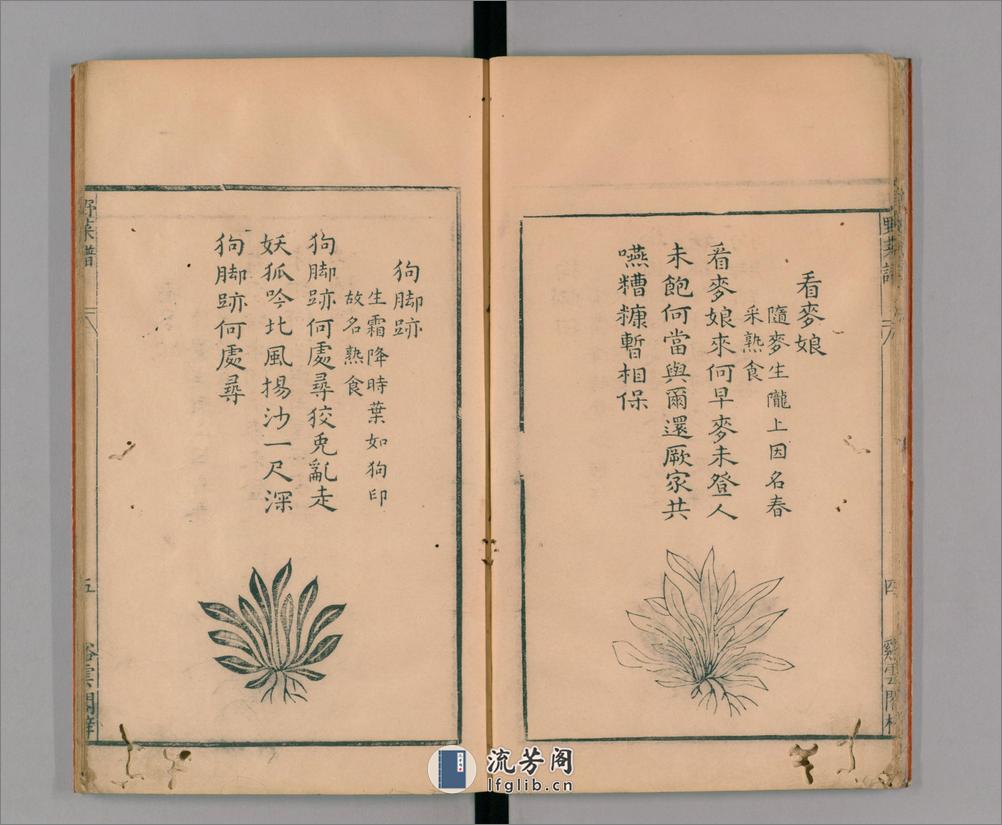 看麥娘
隨麥生隴上因名春
采熟食
看麥娘來何早麥未登人
未飽何當與爾還厥家共
嚥糟糠暫相保
四
狗脚跡
生霜降時葉如狗印
故名熟食
狗脚跡何處尋狡兎亂走
妖狐吟北風揚沙一尺深
狗脚跡何處尋
野菜譜
五
流芳阁
lfglib.cn